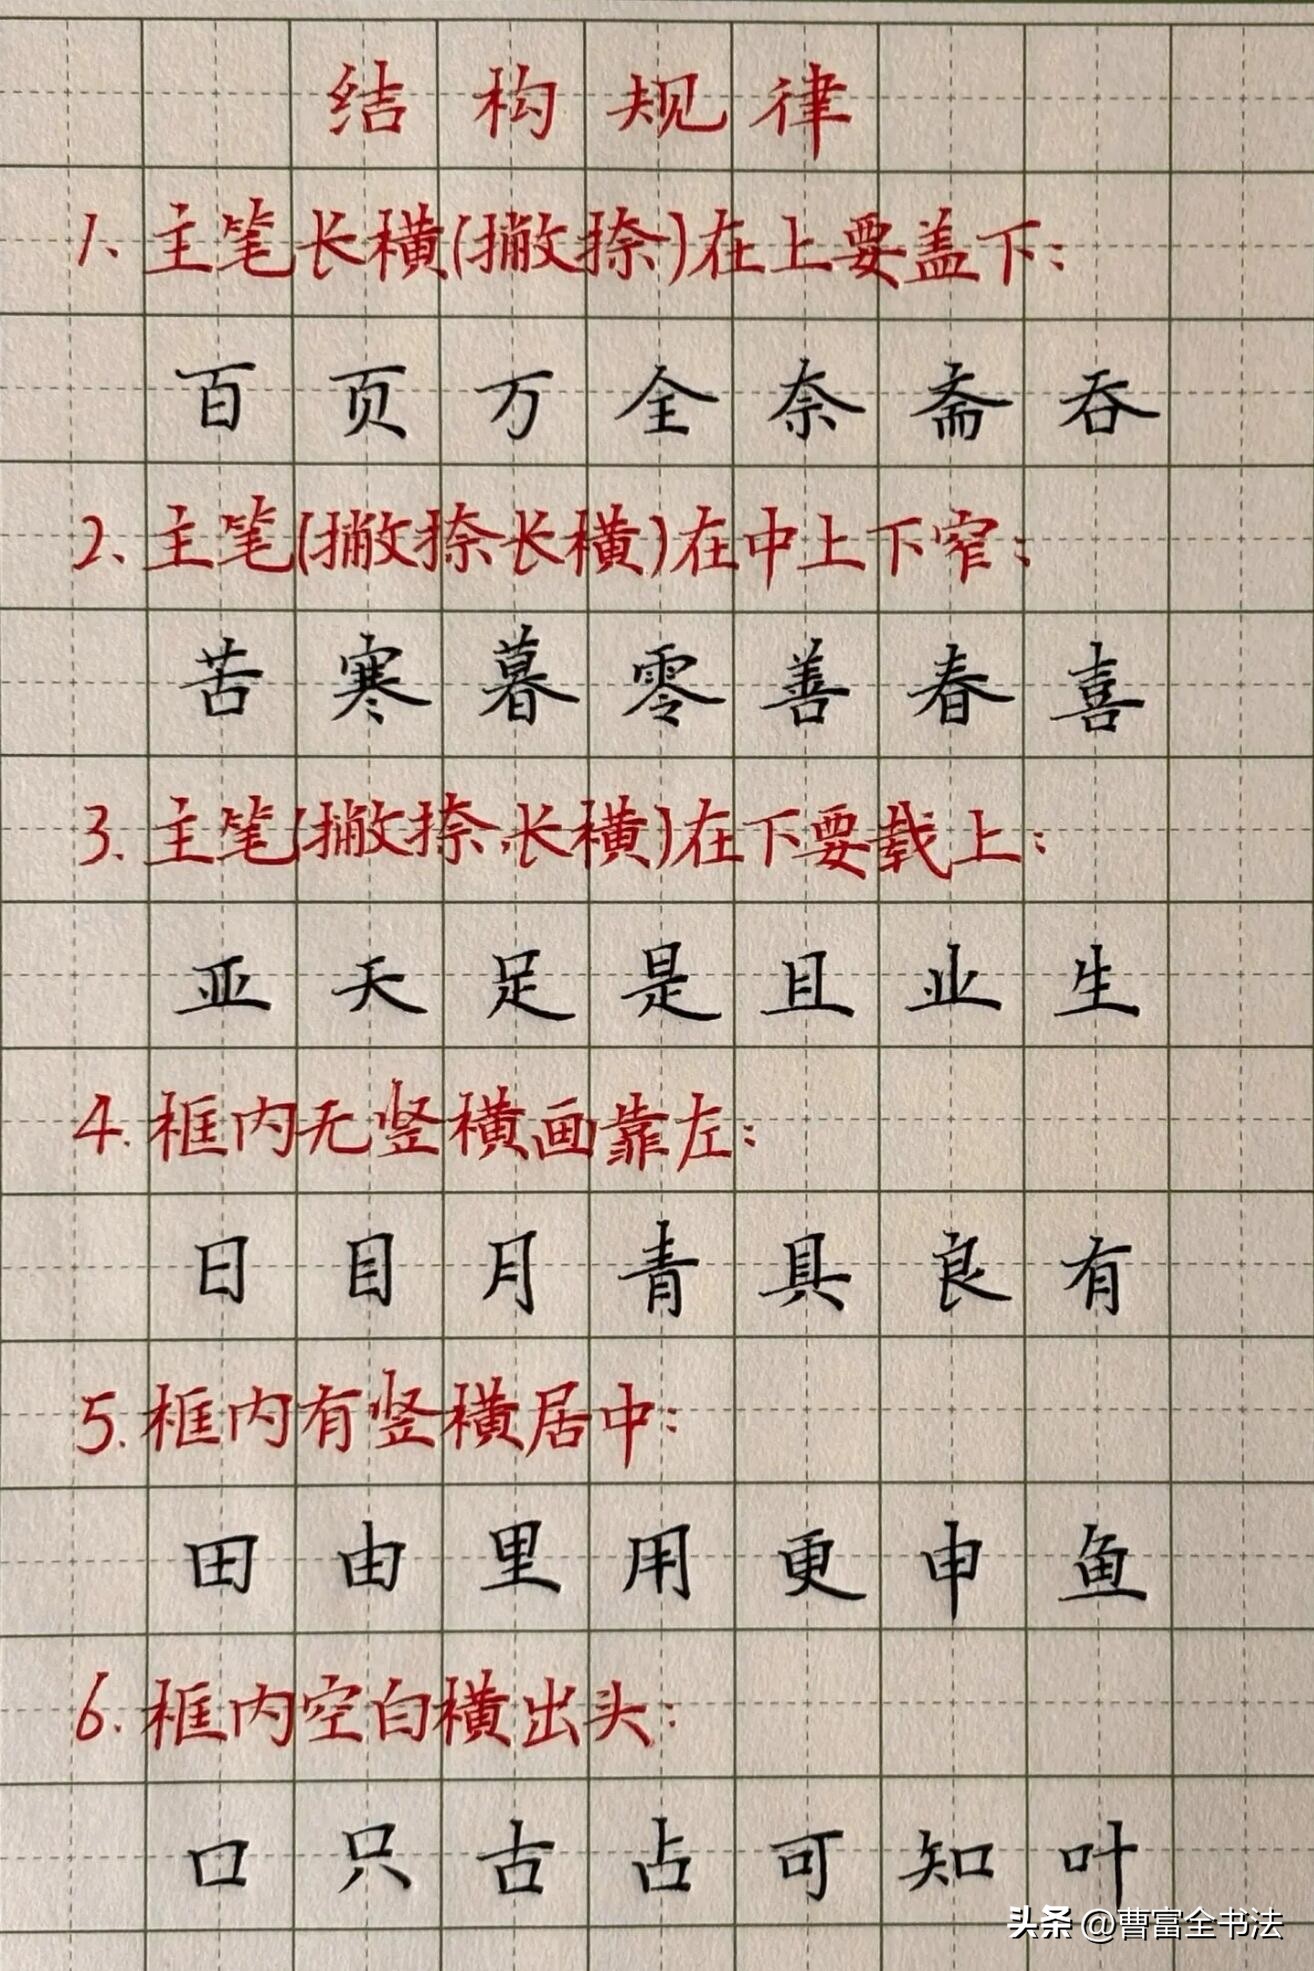 结构规律
1、主笔长横(撇捺)在上要盖下：
百页万全奈斋吞
2、主笔(撇捺长横)在中上下窄：
苦寒暮零善春喜
3.主笔(撇捺,长横)在下要载上：
亚天足是且业生
4.框内无竖横画靠左：
日目月青具良有
5.框内有竖横居中：
田由里用更申鱼
6.框内空白横出头：
口只古占可知叶
头条 @曹富全书法